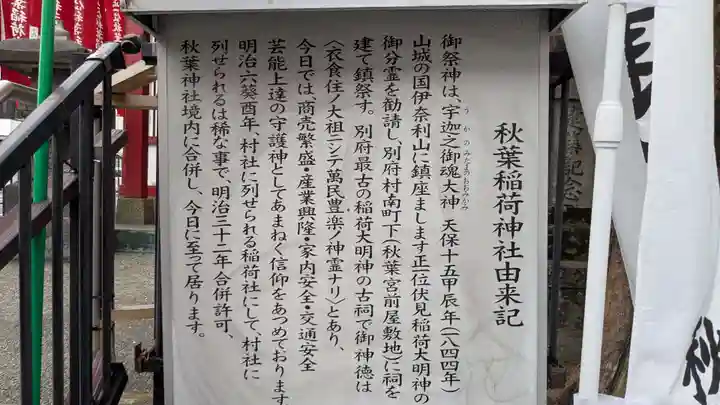 秋葉稲荷神社由来記
御祭神は、宇迦之御魂大神 天保十五甲辰年(一八四四年)
うかのみたまのおおみかみ
山城の国伊奈利山に鎮座まします正一位伏見稲荷大明神の
御分霊を勧請し、別府村南町下(秋葉宮前屋敷地)に祠を
建て鎮祭す。別府最古の稲荷大明神の古祠で御神徳は
〈衣食住ノ大祖ニシテ萬民豊楽ノ神霊ナリ〉とあり、
今日では商売繁盛・産業興隆・家内安全・交通安全
芸能上達の守護神としてあまねく信仰をあつめております
明治六葵酉年、村社に列せられる稲荷社にして、村社に
列せられるは稀な事で、明治三十二年合併許可、
秋葉神社境内に合併し、今日に至って居ります。
秋